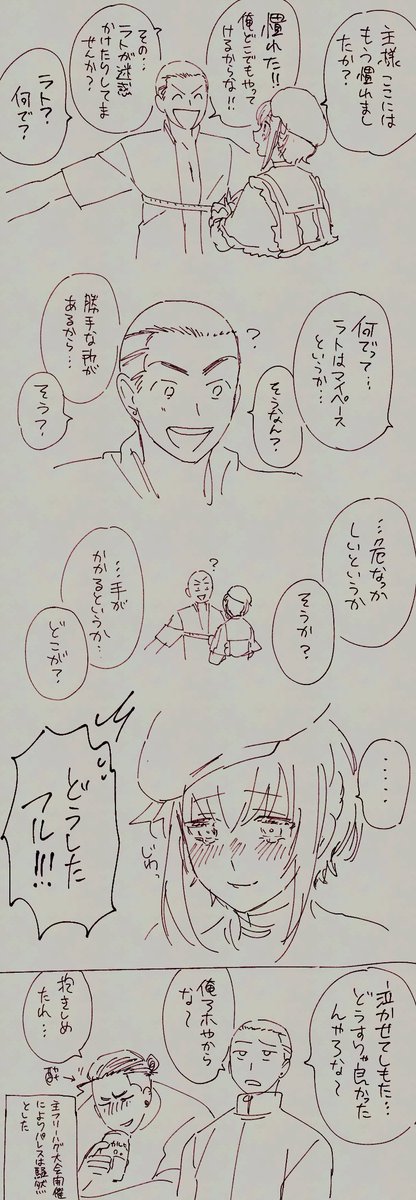 主様ここには
もう慣れまし
たか?
慣れた!!
俺どこでもやって
けるからな!!
その…
ラトが迷惑
かけたりしてま
せんか?
ラト?
何で?
何でって…
ラトはマイペース
というか…
?
そうなん?
勝手な所が
あるから…
そう?
…危なっか
しいというか
そうか?
?
…手が
かかるというか…
どこが?
.....
じわっ
どうした
フル!!!
…泣かせてしもた…
どうすりゃ良かった
んやろな〜
俺アホやから
な〜
抱きしめ
たれ…
酔→
主フリーハグ大会開催
によりパレスは騒然
とした